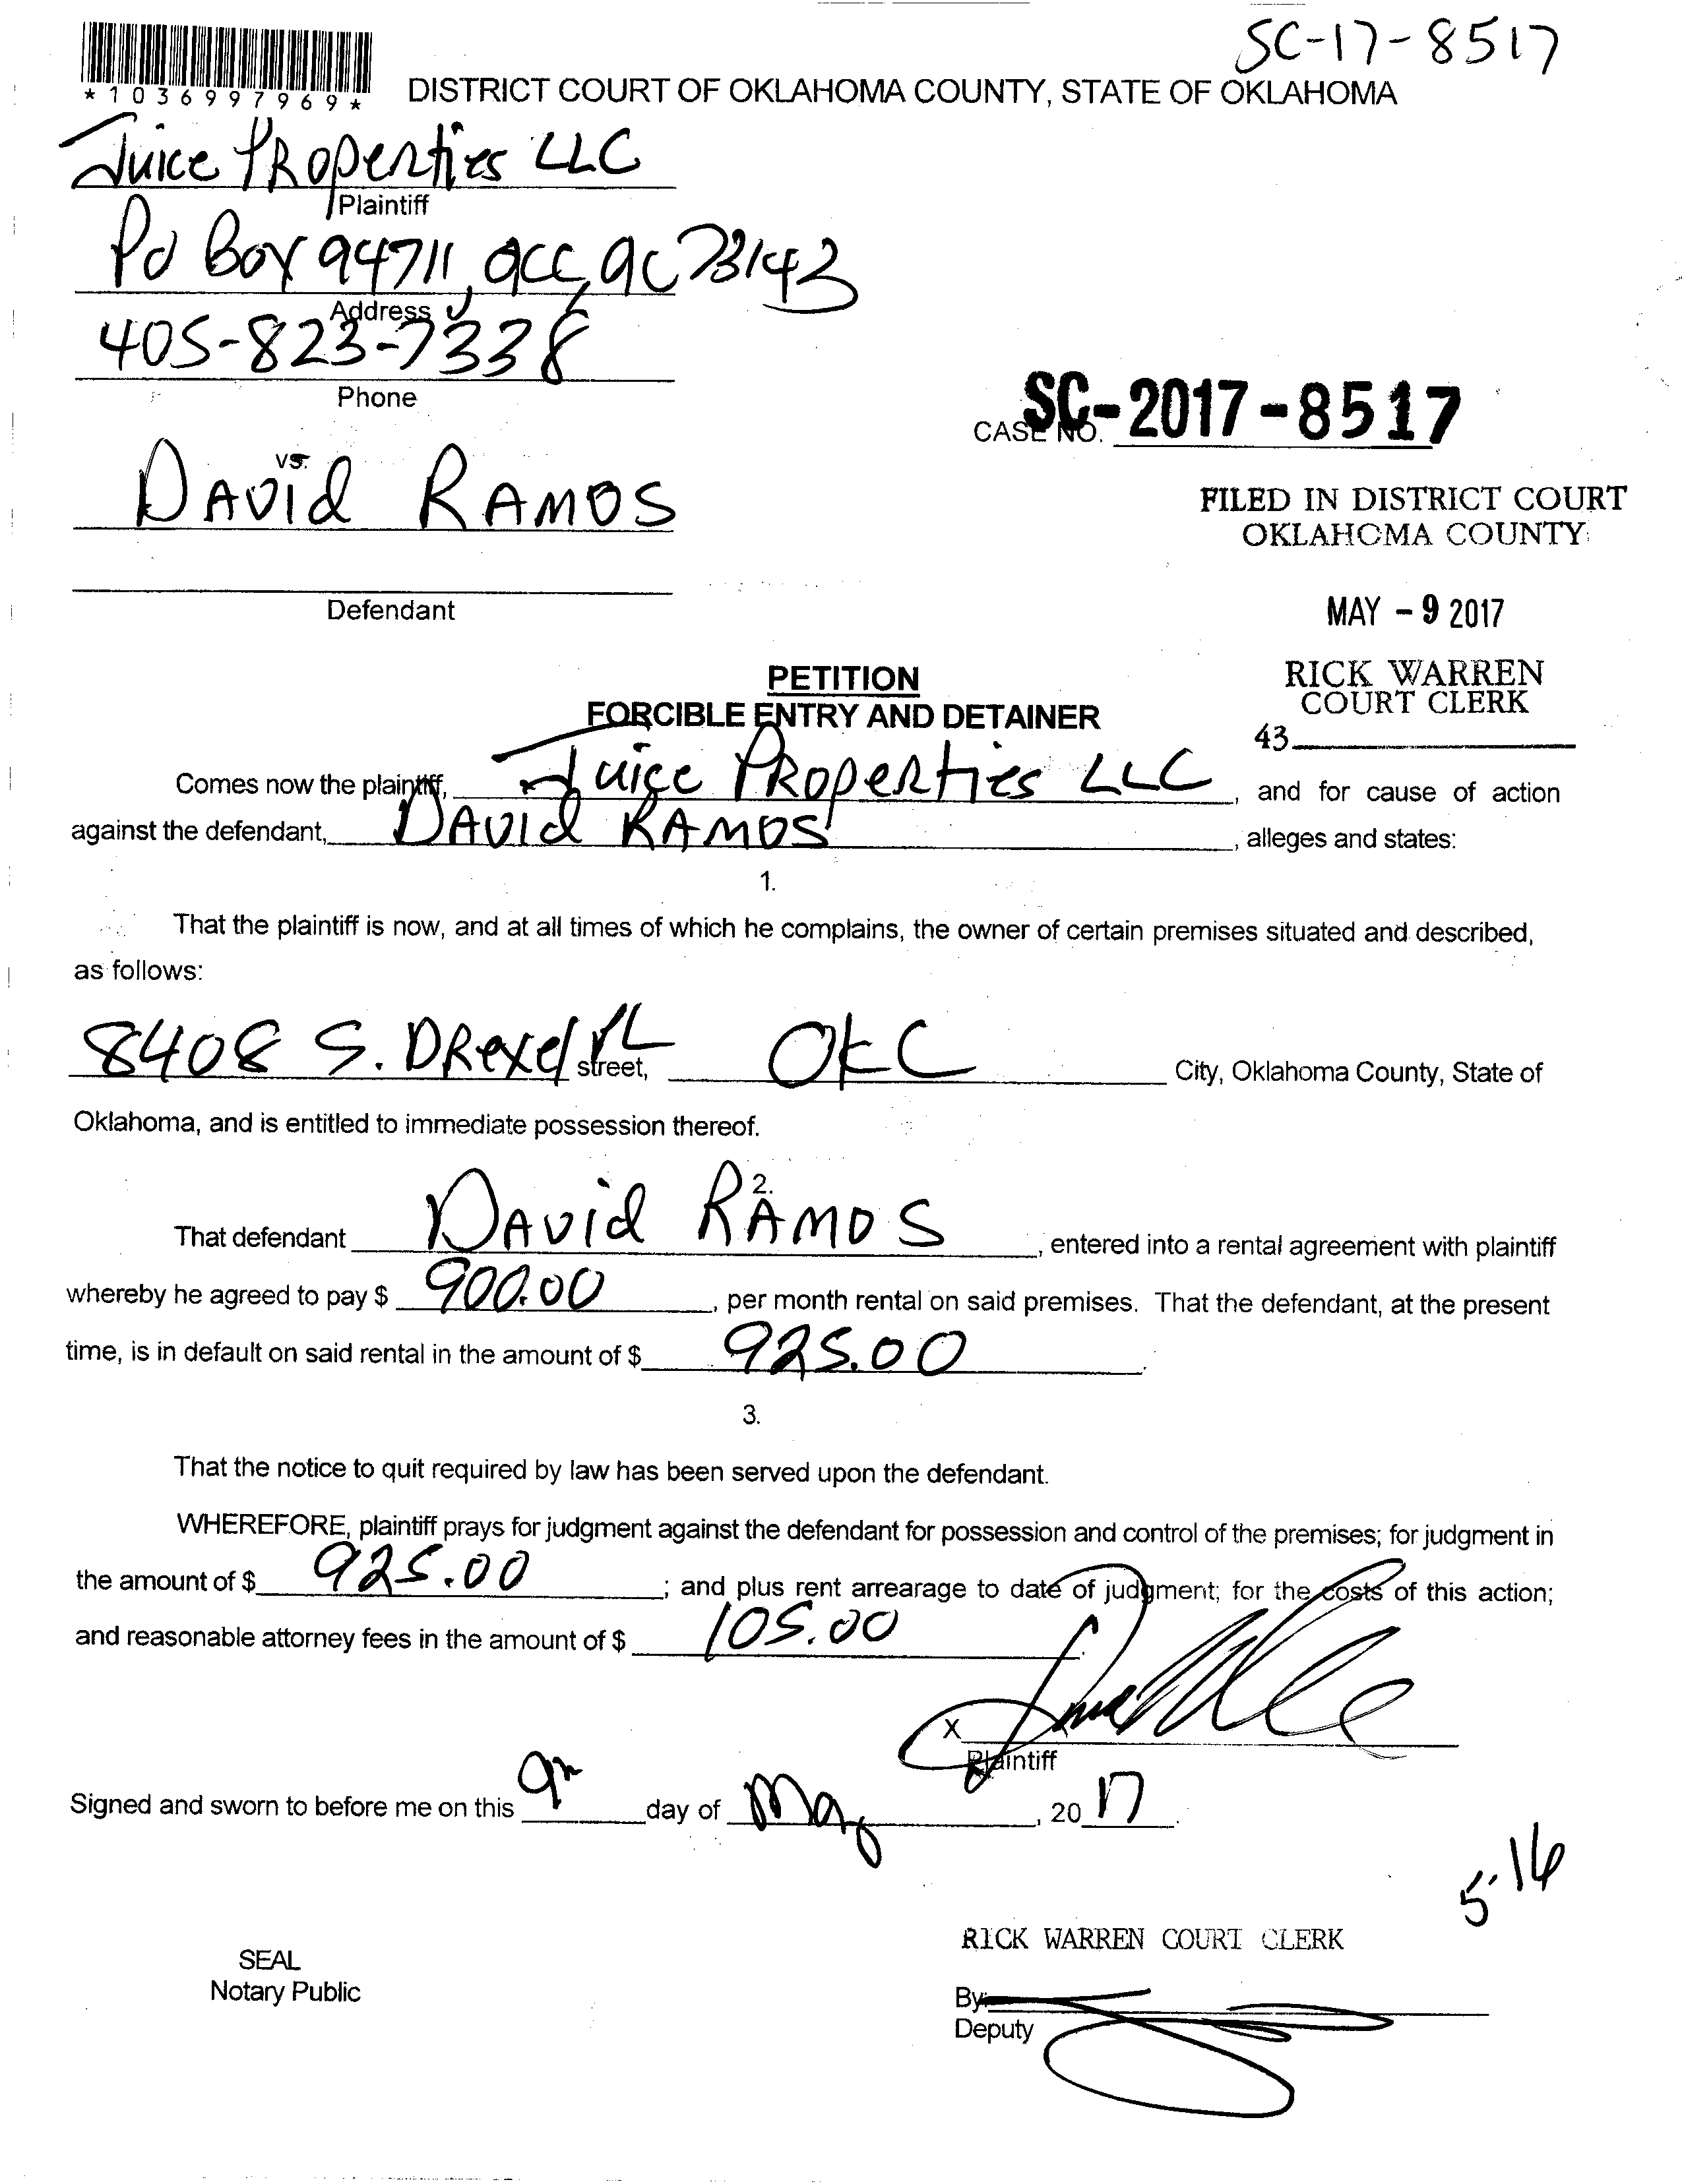 SC-17-8517
*1036997969*
DISTRICT COURT OF OKLAHOMA COUNTY, STATE OF OKLAHOMA
Juice Properties LLC
Plaintiff
PO Box 94711, OKC, OK 73143
Address
405-823-7338
Phone
CASE NO. SC-2017-8517
vs.
David Ramos
FILED IN DISTRICT COURT
OKLAHOMA COUNTY
Defendant
MAY -9 2017
RICK WARREN
COURT CLERK
43
PETITION
FORCIBLE ENTRY AND DETAINER
Comes now the plaintiff, Juice Properties LLC, and for cause of action
against the defendant, David Ramos, alleges and states:
1.
That the plaintiff is now, and at all times of which he complains, the owner of certain premises situated and described,
as follows:
8408 S. Drexel PL street, OKC City, Oklahoma County, State of
Oklahoma, and is entitled to immediate possession thereof.
2.
That defendant David Ramos, entered into a rental agreement with plaintiff
whereby he agreed to pay $ 900.00, per month rental on said premises. That the defendant, at the present
time, is in default on said rental in the amount of $ 925.00.
3.
That the notice to quit required by law has been served upon the defendant.
WHEREFORE, plaintiff prays for judgment against the defendant for possession and control of the premises; for judgment in
the amount of $ 925.00; and plus rent arrearage to date of judgment; for the costs of this action;
and reasonable attorney fees in the amount of $ 105.00.
X
Plaintiff
Signed and sworn to before me on this 9th day of May, 2017.
5-16
RICK WARREN COURT CLERK
SEAL
Notary Public
By:
Deputy